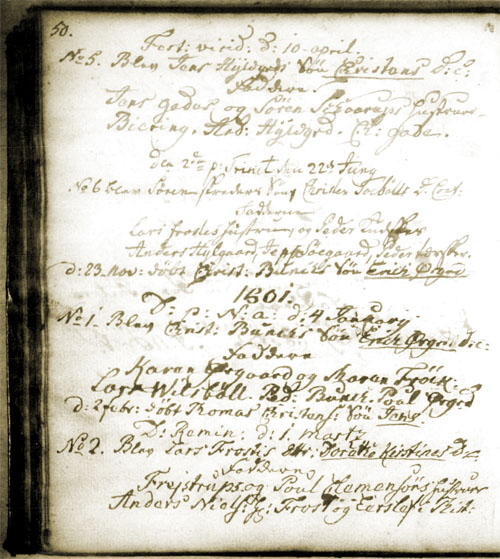 50.
Fest: virid: d: 10. april.
No 5. Blev Jens Hyldgds Søn Christens D: c:
Faddere
Jens gades og Søren hustruer
Biering. And: Hyldgrd. Ch: gade.
den 2de p: Trinit. den 22de Juny
No 6 blev Søren Søn Christen D. Conf:
Faddere
Lars Frostes hustrue, og Peder
Anders Hylgaard, Jepp Søegaard, Peder
d: 23. nov: døbt Christ: Bunchs Søn Erich Ørgrd
1801.
D: a: d: 4 January
No 1. Blev Christ: Bunchs Søn Erich Ørgrd. D: c:
Faddere
Karen Ørsgaard og Maren Frøik.
Lars Wilsbøll. Pd: Bunch. Poul Ørgrd
d: 2 febr: døbt Thomas Christens: Søn Jens.
D: Remin: d: 1. Marti
No 2. Blev Lars Frosts dtr: Dorothe Kirstines D:
Faddere
Frejstrups og Poul Clemensøns hustruer
Anders Niels: Jp: Frost og